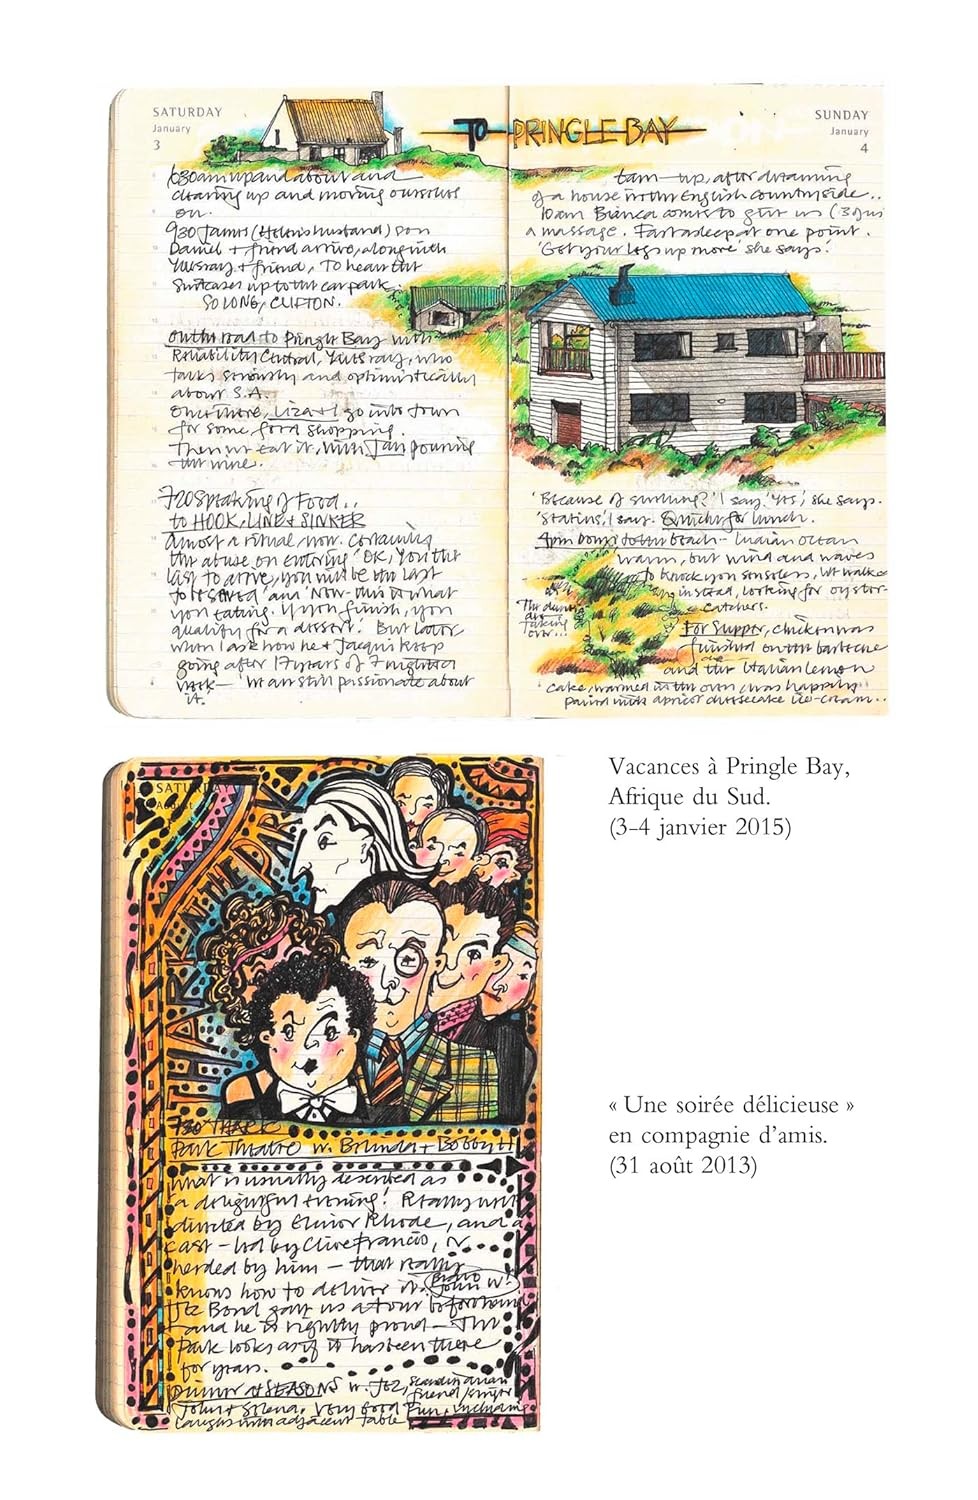 SATURDAY
January
3
TO PRINGLE BAY
SUNDAY
January
4
630am up and about and
clearing up and moving ourselves
on.
930 James (Helen's husband) son
Daniel + friend arrive, along with
+ friend, To hear the
suitcases up to the car park.
SO LONG, CLIFTON.
On the road to Pringle Bay with
Reliability Central, who
talks seriously and optimistically
about S.A.
Once there, Liza + I go into town
for some food shopping.
Then we eat it, with Jan pouring
the wine.
720 Speaking of Food..
to HOOK, LINE + SINKER
Almost a ritual now. Certainly
the abuse on entering 'OK, you're the
last to arrive, you will be the last
to be served' and 'Now- this is what
you're eating. If you finish, you
qualify for a dessert.' But later
when I ask how he + Jacqui keep
going after 17 years of 7 nights a
week— 'We are still passionate about
it.'
up, after dreaming
of a house in the English countryside..
10am Bianca comes to give us
a massage. Fast asleep at one point.
'Get your legs up more' she says.
'Because of swelling?' I say. 'Yes', she says.
'Statins', I say. Quiche for lunch.
4pm down to the beach - Indian Ocean
warm, but wind and waves
to knock you senseless. We walk
instead, looking for oyster-
catchers.
The dunes
are
taking
over...
For Supper, chicken was
finished on the barbecue
and the Italian lemon
cake, warmed in the oven, was happily
paired with apricot cheesecake ice-cream..
Vacances à Pringle Bay,
Afrique du Sud.
(3–4 janvier 2015)
SATURDAY
August
THARK IN THE PARK
730 THARK
Park Theatre w. Belinda + Bobby H
What is usually described as
a delightful evening! Really well
directed by Elinor Rhode, and a
cast - led by Clive Francis, or
herded by him — that really
knows how to deliver it. Bravo
John W!
Jez Bond gave us a tour beforehand
and he is rightly proud — The
Park looks as if it has been there
for years.
Dinner at SEASONS w. Jez, Scandinavian
friend
John + Selena. Very good Fun, including
laughs with adjacent table
« Une soirée délicieuse »
en compagnie d'amis.
(31 août 2013)